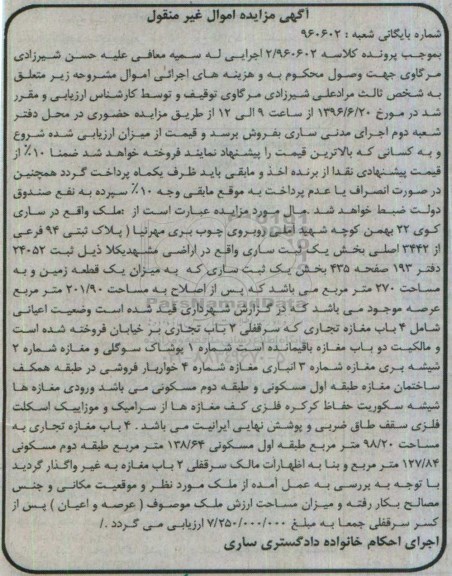 آگهی مزایده اموال غیر منقول
شماره بایگانی شعبه : ۹۶۰۶۰۲
بموجب پرونده کلاسه ۲/۹۶۰۶۰۲ اجرایی له سمیه معافی علیه حسن شیرزادی
مرگاوی جهت وصول محکوم به و هزینه های اجرائی اموال مشروحه زیر متعلق
به شخص ثالث مرادعلی شیرزادی مرگاوی توقیف و توسط کارشناس ارزیابی و مقرر
شد در مورخ ۱۳۹۶/۶/۲۰ از ساعت ۹ الی ۱۲ از طریق مزایده حضوری در محل دفتر
شعبه دوم اجرای مدنی ساری بفروش برسد و قیمت از میزان ارزیابی شده شروع
و به کسانی که بالاترین قیمت را پیشنهاد نمایند فروخته خواهد شد ضمنا ۱۰٪ از
قیمت پیشنهادی نقدا از برنده اخذ و مابقی باید ظرف یکماه پرداخت گردد همچنین
در صورت انصراف یا عدم پرداخت به موقع مابقی وجه ۱۰٪ سپرده به نفع صندوق
دولت ضبط خواهد شد .مال مورد مزایده عبارت است از :ملک واقع در ساری
کوی ۲۲ بهمن کوچه شهید آملی روبروی چوب بری مهرنیا ( پلاک ثبتی ۹۴ فرعی
از ۳۴۴۲ اصلی بخش یک ثبت ساری واقع در اراضی مشهدیکلا ذیل ثبت ۲۴۰۵۲
دفتر ۱۹۳ صفحه ۴۳۵ بخش یک ثبت ساری که به میزان یک قطعه زمین و به
مساحت ۲۷۰ متر مربع می باشد که پس از اصلاح به مساحت ۲۰۱/۹۰ متر مربع
عرصه موجود می باشد که در گزارش شهرداری قید شده است وضعیت اعیانی
شامل ۴ باب مغازه تجاری که سرقفلی ۲ باب تجاری بر خیابان فروخته شده است
و مالکیت دو باب مغازه باقیمانده است شماره ۱ پوشاک سوگلی و مغازه شماره ۲
شیشه بری مغازه شماره ۳ انباری مغازه شماره ۴ خواربار فروشی در طبقه همکف
ساختمان مغازه طبقه اول مسکونی و طبقه دوم مسکونی می باشد ورودی مغازه ها
شیشه سکوریت حفاظ کرکره فلزی کف مغازه ها از سرامیک و موزاییک اسکلت
فلزی سقف طاق ضربی و پوشش نهایی ایرانیت می باشد . ۴ باب مغازه تجاری به
مساحت ۹۸/۲۰ متر مربع طبقه اول مسکونی ۱۳۸/۶۴ متر مربع طبقه دوم مسکونی
۱۲۷/۸۴ متر مربع و بنا به اظهارات مالک سرقفلی ۲ باب مغازه به غیر واگذار گردید
با توجه به بررسی به عمل آمده از ملک مورد نظر و موقعیت مکانی و جنس
مصالح بکار رفته و میزان مساحت ارزش ملک موصوف ( عرصه و اعیان ) پس از
کسر سرقفلی جمعا به مبلغ ۷/۲۵۰/۰۰۰/۰۰۰ ارزیابی می گردد ./
اجرای احکام خانواده دادگستری ساری